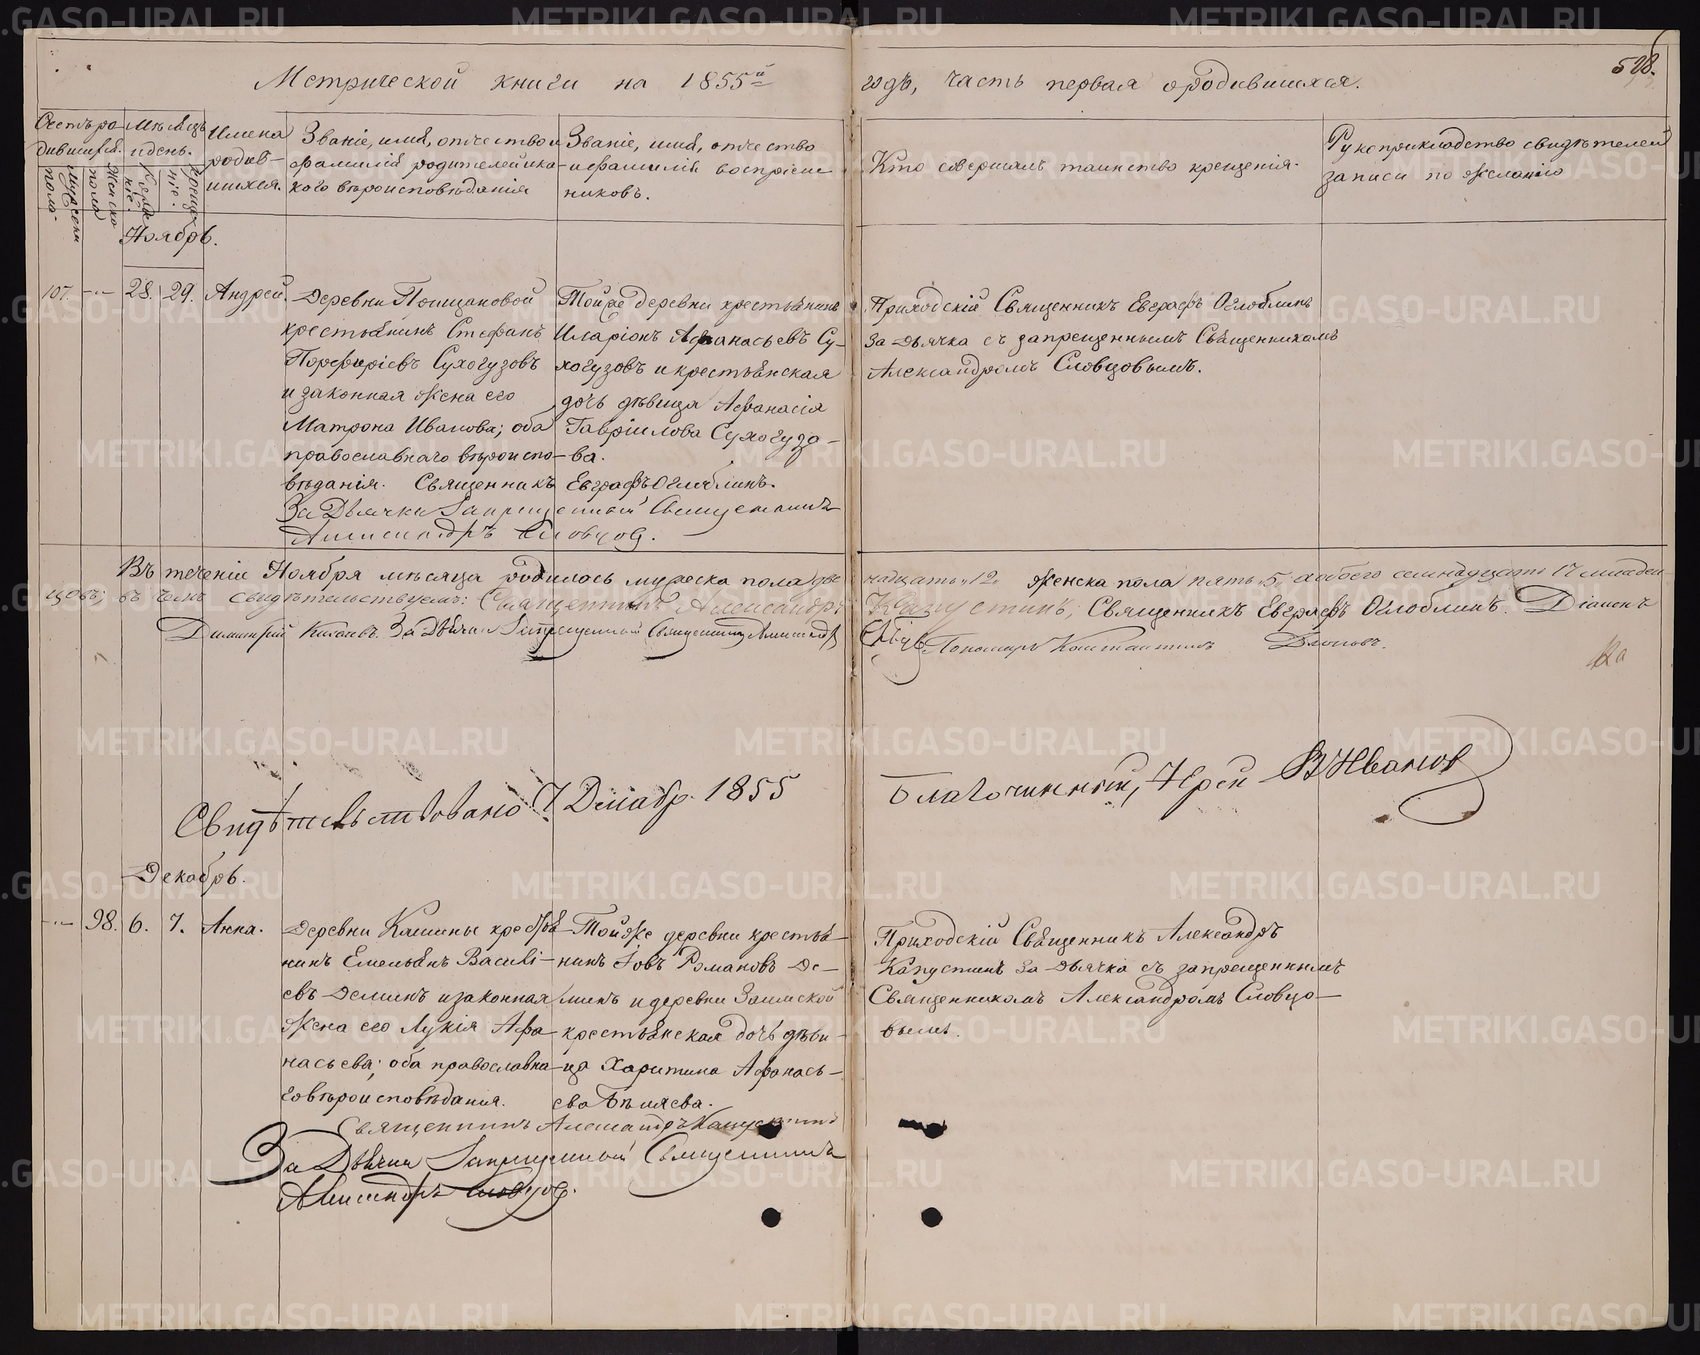 508.
Метрической книги на 1855й годъ, часть первая о родившихся.
Счетъ родившихся.
мужеска пола.
женска пола
Мѣсяцъ и день.
рожденіе.
крещеніе.
Имена родившихся.
Званіе, имя, отчество и
фамилія родителей и ка-
кого вѣроисповѣданія
Званіе, имя, отчество
и фамилія воспріем-
никовъ.
Кто совершалъ таинство крещенія.
Рукоприкладство свидѣтелей
записи по желанію
Ноябрь.
107. 28. 29. Андрей.
Деревни
крестьянинъ Стефанъ
Порфиріевъ Сухогузовъ
и законная жена его
Матрона Иванова; оба
православнаго вѣроиспо-
вѣданія. Священникъ Евграфъ Оглоблинъ.
За Дьячка Запрещенный Священникъ
Александръ Словцов.
Той же деревни крестьянинъ
Иларіонъ Афанасьевъ Су-
хогузовъ и крестьянская
дочь дѣвица Афанасія
Гавріилова Сухогузо-
ва.
Приходскій Священникъ Евграфъ Оглоблинъ
за дьячка съ запрещеннымъ Священникомъ
Александромъ Словцовымъ.
Въ теченіи Ноября мѣсяца родилось мужеска пола две надцать „12„ женска пола пять „5„ обоего семнадцать 17 младен
цовъ; въ чемъ свидѣтельствуемъ: Священникъ Александръ Капустинъ, Священникъ Евграфъ Оглоблинъ. Діаконъ
Димитрій За Дьячка Запрещенный Священникъ Александръ Словцов Пономарь Константинъ
Свидѣтельствовано 7 Декабр. 1855 Благочинный, Іерей В Иванов
Декабрь.
98. 6. 7. Анна.
Деревни Кашины крестья
нинъ Емельянъ Василі-
евъ Деминъ и законная
жена его Лукія Афа
насьева; оба православна
го вѣроисповѣданія.
Той же деревни крестья-
нинъ Іовъ Романовъ Де-
минъ и деревни Заимской
крестьянская дочь дѣви-
ца Харитина Афанась-
ева Бѣляева.
Священникъ Александръ Капустинъ
За Дьячка Запрещенный Священникъ
Александръ Словцов.
Приходскій Священникъ Александръ
Капустинъ за дьячка съ запрещеннымъ
Священникомъ Александромъ Словцо-
вымъ.
METRIKI.GASO-URAL.RU